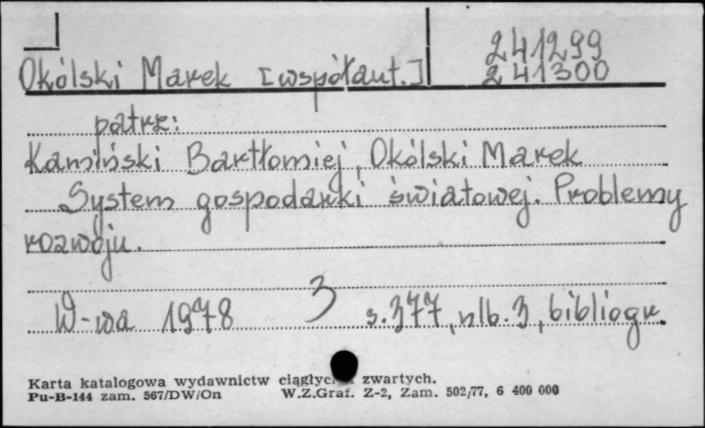 241299
Okólski Marek [współaut.] 241300
patrz:
Kamiński Bartłomiej, Okólski Marek
System gospodarki światowej. Problemy
rozwoju.
W-wa 1978 3 s. 377, nlb. 3, bibliogr.
Karta katalogowa wydawnictw zwartych.
Pu-B-144 zam. 567/DW/On W.Z.Graf. Z-2, Zam. 502/77, 6 400 000